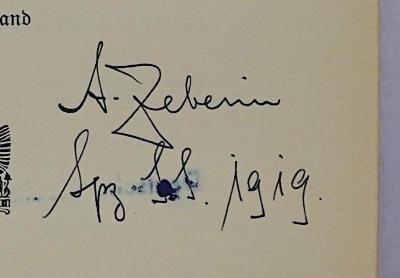 and
A. Zeberin
Spz. 55. 1919.